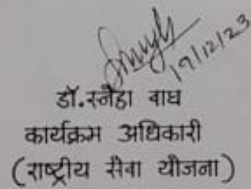 19/12/23
डॉ.स्नेहा वाघ
कार्यक्रम अधिकारी
(राष्ट्रीय सेवा योजना)